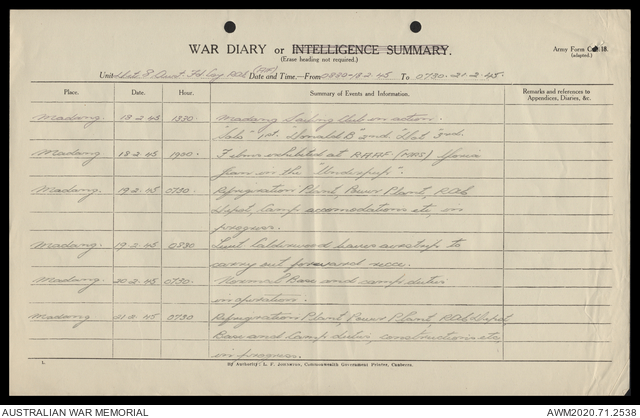 WAR DIARY or INTELLIGENCE SUMMARY.
(Erase heading not required.)
Army Form C. 18.
(adapted.)
Unit 8 Aust. Fd Coy RAE Date and Time,—From 0830-18.2.45 To 0730.21.2.45.
Place. Date. Hour. Summary of Events and Information. Remarks and references to Appendices, Diaries, &c.
Madang. 18.2.45 1330 Madang Sailing Club in action.
1st "Donald B" 2nd 3rd.
Madang 18.2.45 1900 Films exhibited at RAAF
in the
Madang. 19.2.45 0730 Refrigeration Plant, Power Plant, RAE
Depot, Camp accomodations etc, in
progress.
Madang. 19.2.45 0830 Lieut Calderwood leaves airstrip to
carry out forward recce.
Madang. 20.2.45 0730 Normal Base and camp duties
in operation.
Madang 21.2.45 0730 Refrigeration Plant, Power Plant RAE Depot
Base and Camp duties, constructions etc
in progress.
1. By Authority: L. F. Johnston, Commonwealth Government Printer, Canberra.
AUSTRALIAN WAR MEMORIAL AWM2020.71.2538